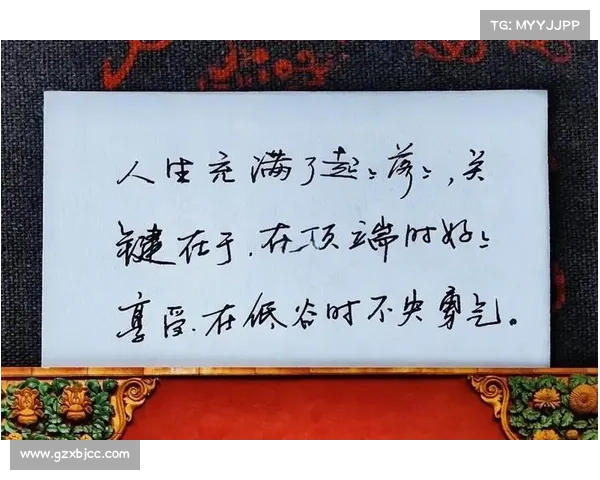 TG: MYYJJPP
人生充满了起々落々，关
键在于、在顶端时好々
享受、在低谷时不失勇气。
www.gzxbjcc.com